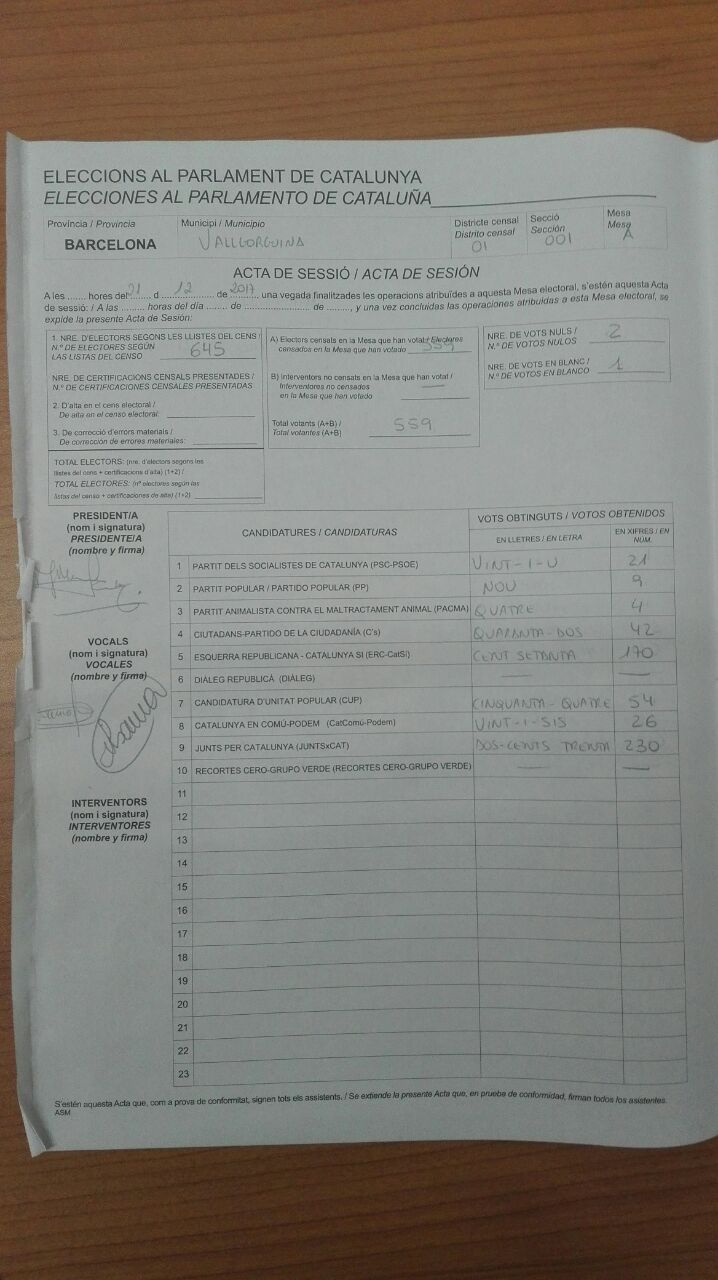 ELECCIONS AL PARLAMENT DE CATALUNYA
ELECCIONES AL PARLAMENTO DE CATALUÑA
Província / Provincia
BARCELONA
Municipi / Municipio
VALLGORGUINA
Districte censal
Distrito censal
01
Secció
Sección
001
Mesa
Mesa
A
ACTA DE SESSIÓ / ACTA DE SESIÓN
A les ....... hores del 21 d 12 de 2017 una vegada finalitzades les operacions atribuïdes a aquesta Mesa electoral, s'estén aquesta Acta
de sessió: / A las ......... horas del día ........ de ........................ de ........, y una vez concluidas las operaciones atribuidas a esta Mesa electoral, se
expide la presente Acta de Sesión:
1. NRE. D'ELECTORS SEGONS LES LLISTES DEL CENS /
N.º DE ELECTORES SEGÚN
LAS LISTAS DEL CENSO
645
NRE. DE CERTIFICACIONS CENSALS PRESENTADES /
N.º DE CERTIFICACIONES CENSALES PRESENTADAS
2. D'alta en el cens electoral /
De alta en el censo electoral:
3. De correcció d'errors materials /
De corrección de errores materiales:
TOTAL ELECTORS: (nre. d'electors segons les
llistes del cens + certificacions d'alta) (1+2) /
TOTAL ELECTORES: (nº electores según las
listas del censo + certificaciones de alta) (1+2)
A) Electors censats en la Mesa que han votat / Electores
censados en la Mesa que han votado 559
B) Interventors no censats en la Mesa que han votat /
Interventores no censados
en la Mesa que han votado
—
Total votants (A+B) /
Total votantes (A+B)
559
NRE. DE VOTS NULS /
N.º DE VOTOS NULOS
2
NRE. DE VOTS EN BLANC /
N.º DE VOTOS EN BLANCO
1
PRESIDENT/A
(nom i signatura)
PRESIDENTE/A
(nombre y firma)
VOCALS
(nom i signatura)
VOCALES
(nombre y firma)
INTERVENTORS
(nom i signatura)
INTERVENTORES
(nombre y firma)
CANDIDATURES / CANDIDATURAS
VOTS OBTINGUTS / VOTOS OBTENIDOS
EN LLETRES / EN LETRA
EN XIFRES / EN NÚM.
1 PARTIT DELS SOCIALISTES DE CATALUNYA (PSC-PSOE) VINT-I-U 21
2 PARTIT POPULAR / PARTIDO POPULAR (PP) NOU 9
3 PARTIT ANIMALISTA CONTRA EL MALTRACTAMENT ANIMAL (PACMA) QUATRE 4
4 CIUTADANS-PARTIDO DE LA CIUDADANÍA (C's) QUARANTA-DOS 42
5 ESQUERRA REPUBLICANA - CATALUNYA SÍ (ERC-CatSí) CENT SETANTA 170
6 DIÀLEG REPUBLICÀ (DIÀLEG) — —
7 CANDIDATURA D'UNITAT POPULAR (CUP) CINQUANTA-QUATRE 54
8 CATALUNYA EN COMÚ-PODEM (CatComú-Podem) VINT-I-SIS 26
9 JUNTS PER CATALUNYA (JUNTSxCAT) DOS-CENTS TRENTA 230
10 RECORTES CERO-GRUPO VERDE (RECORTES CERO-GRUPO VERDE) — —
11
12
13
14
15
16
17
18
19
20
21
22
23
S'estén aquesta Acta que, com a prova de conformitat, signen tots els assistents. / Se extiende la presente Acta que, en prueba de conformidad, firman todos los asistentes.
ASM